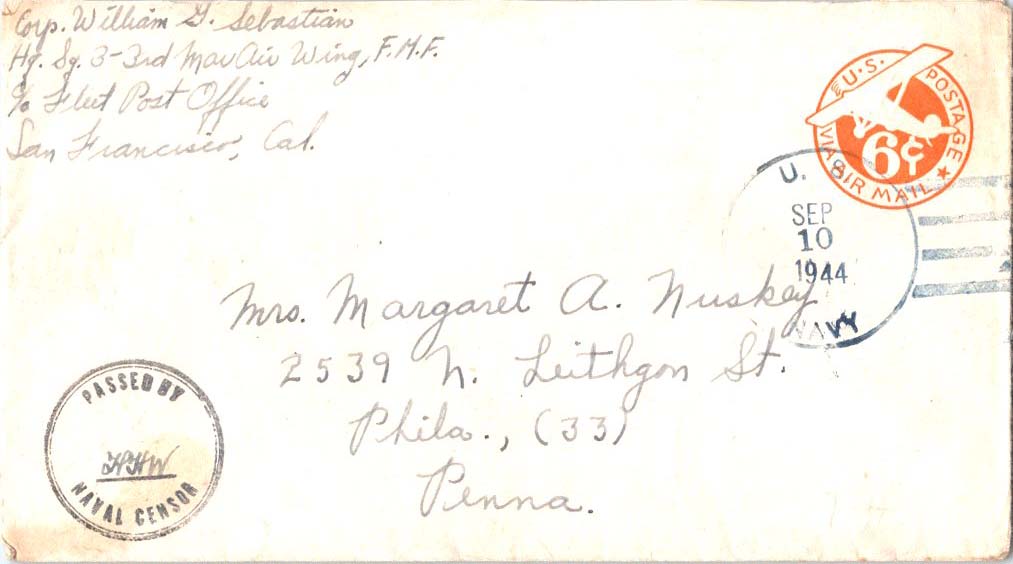 Corp. William G. Sebastian
Hq. Sq. 3-3rd Mar Air Wing, F.M.F.
c/o Fleet Post Office
San Francisco, Cal.
U.S. POSTAGE
6¢
VIA AIR MAIL
U. S.
SEP
10
1944
NAVY
Mrs. Margaret A. Nuskey
2539 N. Leithgon St.
Phila., (33)
Penna.
PASSED BY
HHW
NAVAL CENSOR